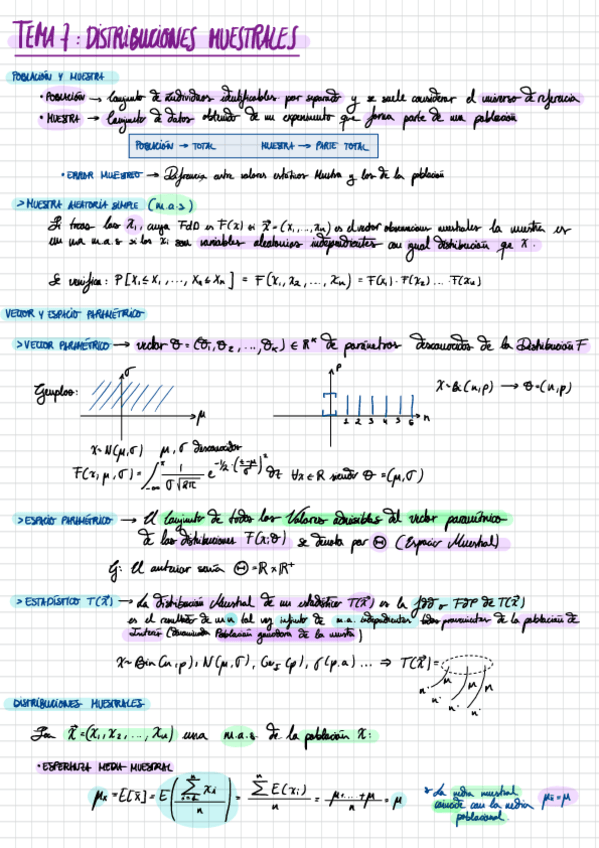 TEMA 7: DISTRIBUCIONES MUESTRALES
POBLACIÓN Y MUESTRA
• POBLACIÓN → Conjunto de individuos identificables por separado y se suele considerar el universo de referencia
• MUESTRA → Conjunto de datos obtenido de un experimento que forma parte de una población
POBLACIÓN → TOTAL MUESTRA → PARTE TOTAL
• ERROR MUESTREO → Diferencia entre valores estadísticos Muestra y los de la población
> MUESTRA ALEATORIA SIMPLE (m.a.s)
Si las X, cuya FdD es F(x) si X⃗ = (X₁, ..., Xₙ) es el vector observaciones muestrales la muestra es
una m.a.s si los Xᵢ son variables aleatorias independientes con igual distribución que X.
Se verifica: P[X₁ ≤ X₁, ..., Xₙ ≤ Xₙ] = F(X₁, X₂, ..., Xₙ) = F(X₁) · F(X₂) ... F(Xₙ)
VECTOR Y ESPACIO PARAMÉTRICO
> VECTOR PARAMÉTRICO → vector θ = (θ₁, θ₂, ..., θₖ) ∈ ℝᵏ de parámetros desconocidos de la Distribución F
Ejemplos: σ μ
P 1 2 3 4 5 6 n
X~B(n,p) → θ = (n,p)
X~N(μ,σ) μ, σ desconocidos
F(x, μ, σ) = ∫₋∞ˣ 1/(σ√2π) e^(-1/2 · ((z-μ)/σ)²) dz ∀x ∈ ℝ siendo θ = (μ,σ)
> ESPACIO PARAMÉTRICO → El Conjunto de todos los Valores admisibles del vector paramétrico
de las distribuciones F(x;θ) se denota por Θ (Espacio Muestral)
Ej: El anterior sería Θ = ℝ × ℝ⁺
> ESTADÍSTICO T(X⃗) → La distribución Muestral de un estadístico T(X⃗) es la fdD o FdP de T(X⃗)
es el resultado de un tal vez infinito de m.a. independientes provenientes de la población de
Interés (Población generadora de la muestra)
X~Bin(n,p), N(μ,σ), (p), γ(p.a) ... ⇒ T(X⃗) =
n n n n
DISTRIBUCIONES MUESTRALES
Sea X⃗ = (X₁, X₂, ..., Xₙ) una m.a.s de la población X:
• ESPERANZA MEDIA MUESTRAL
μₓ = E[x̄] = E(∑ᵢ₌₁ⁿ Xᵢ / n) = ∑ⁿ E(Xᵢ) / n = (μ+...+μ) / n = μ
* La media muestral
coincide con la media μx̄ = μ
poblacional.